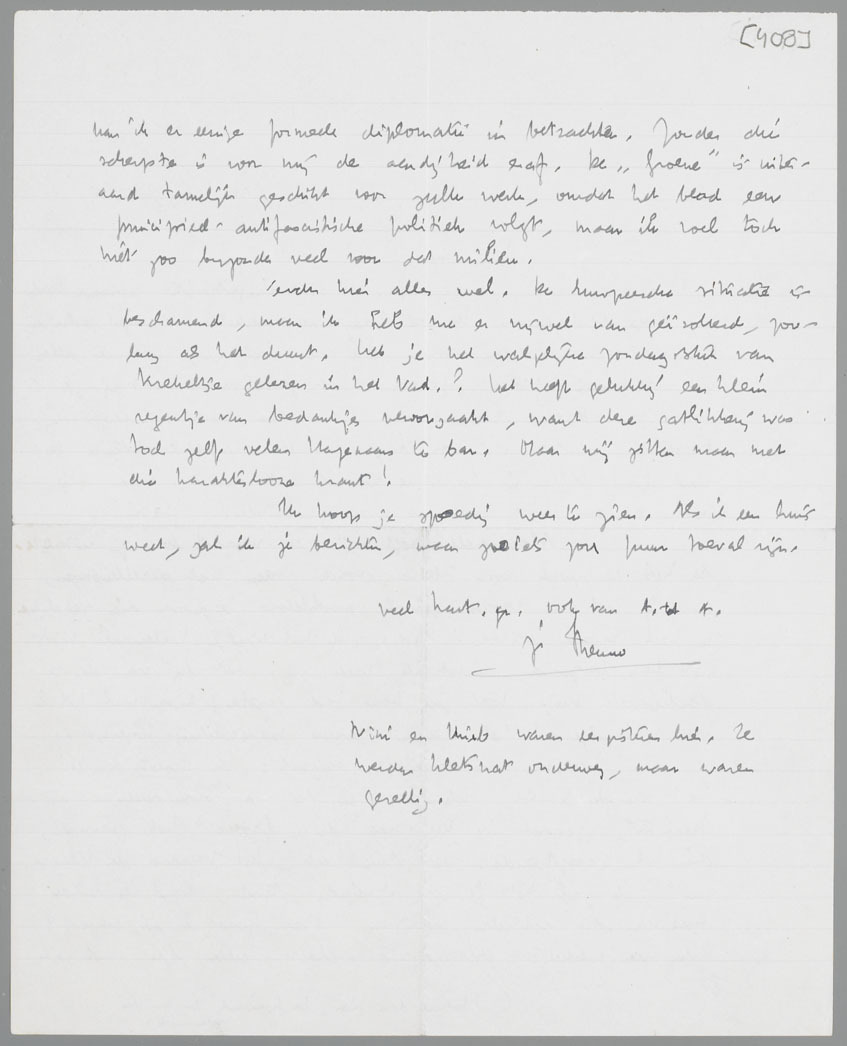 [408]
kan ik er eenige formeele diplomatie in betrachten. Zonder die
scherpte is voor mij de aardigheid eraf. De „Groene” is uiter-
aard tamelijk geschikt voor zulk werk, omdat het blad een
principieel-antifascistische politiek volgt, maar ik voel toch
niet zoo bijzonder veel voor dat milieu.
Verder hier alles wel. De Europeesche situatie is
beschamend, maar ik heb me er nijwel van geïsoleerd, zoo-
lang als het duurt. Heb je het walgelijke zondagsstuk van
Krekeltje gelezen in het Vad.? Het heeft gelukkig een klein
regentje van bedankjes veroorzaakt, want deze gatlikkerij was
toch zelf velen Hagenaars te bar. Maar wij zitten maar met
die karakterlooze krant!
Ik hoop je spoedig weer te zien. Als ik een huis
weet, zal ik je berichten, maar zooiets zou puur toeval zijn.
veel hart. gr. ook van A. tot A.
je Menno
Nini en Huib waren eergisteren hier. Ze
werden kletsnat onderweg, maar waren
gezellig.